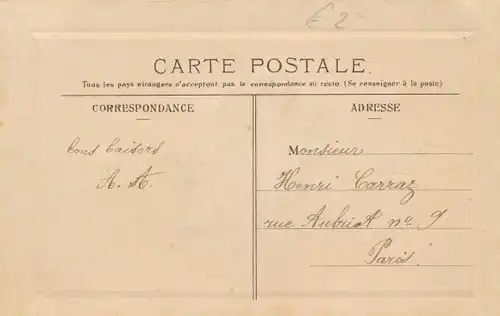 € 2
CARTE POSTALE.
Tous les pays étrangers n'acceptent pas la correspondance au recto (Se renseigner à la poste)
CORRESPONDANCE
Bons Baisers
A. A.
ADRESSE
Monsieur
Henri Carraz
rue Aubriot no 9
Paris